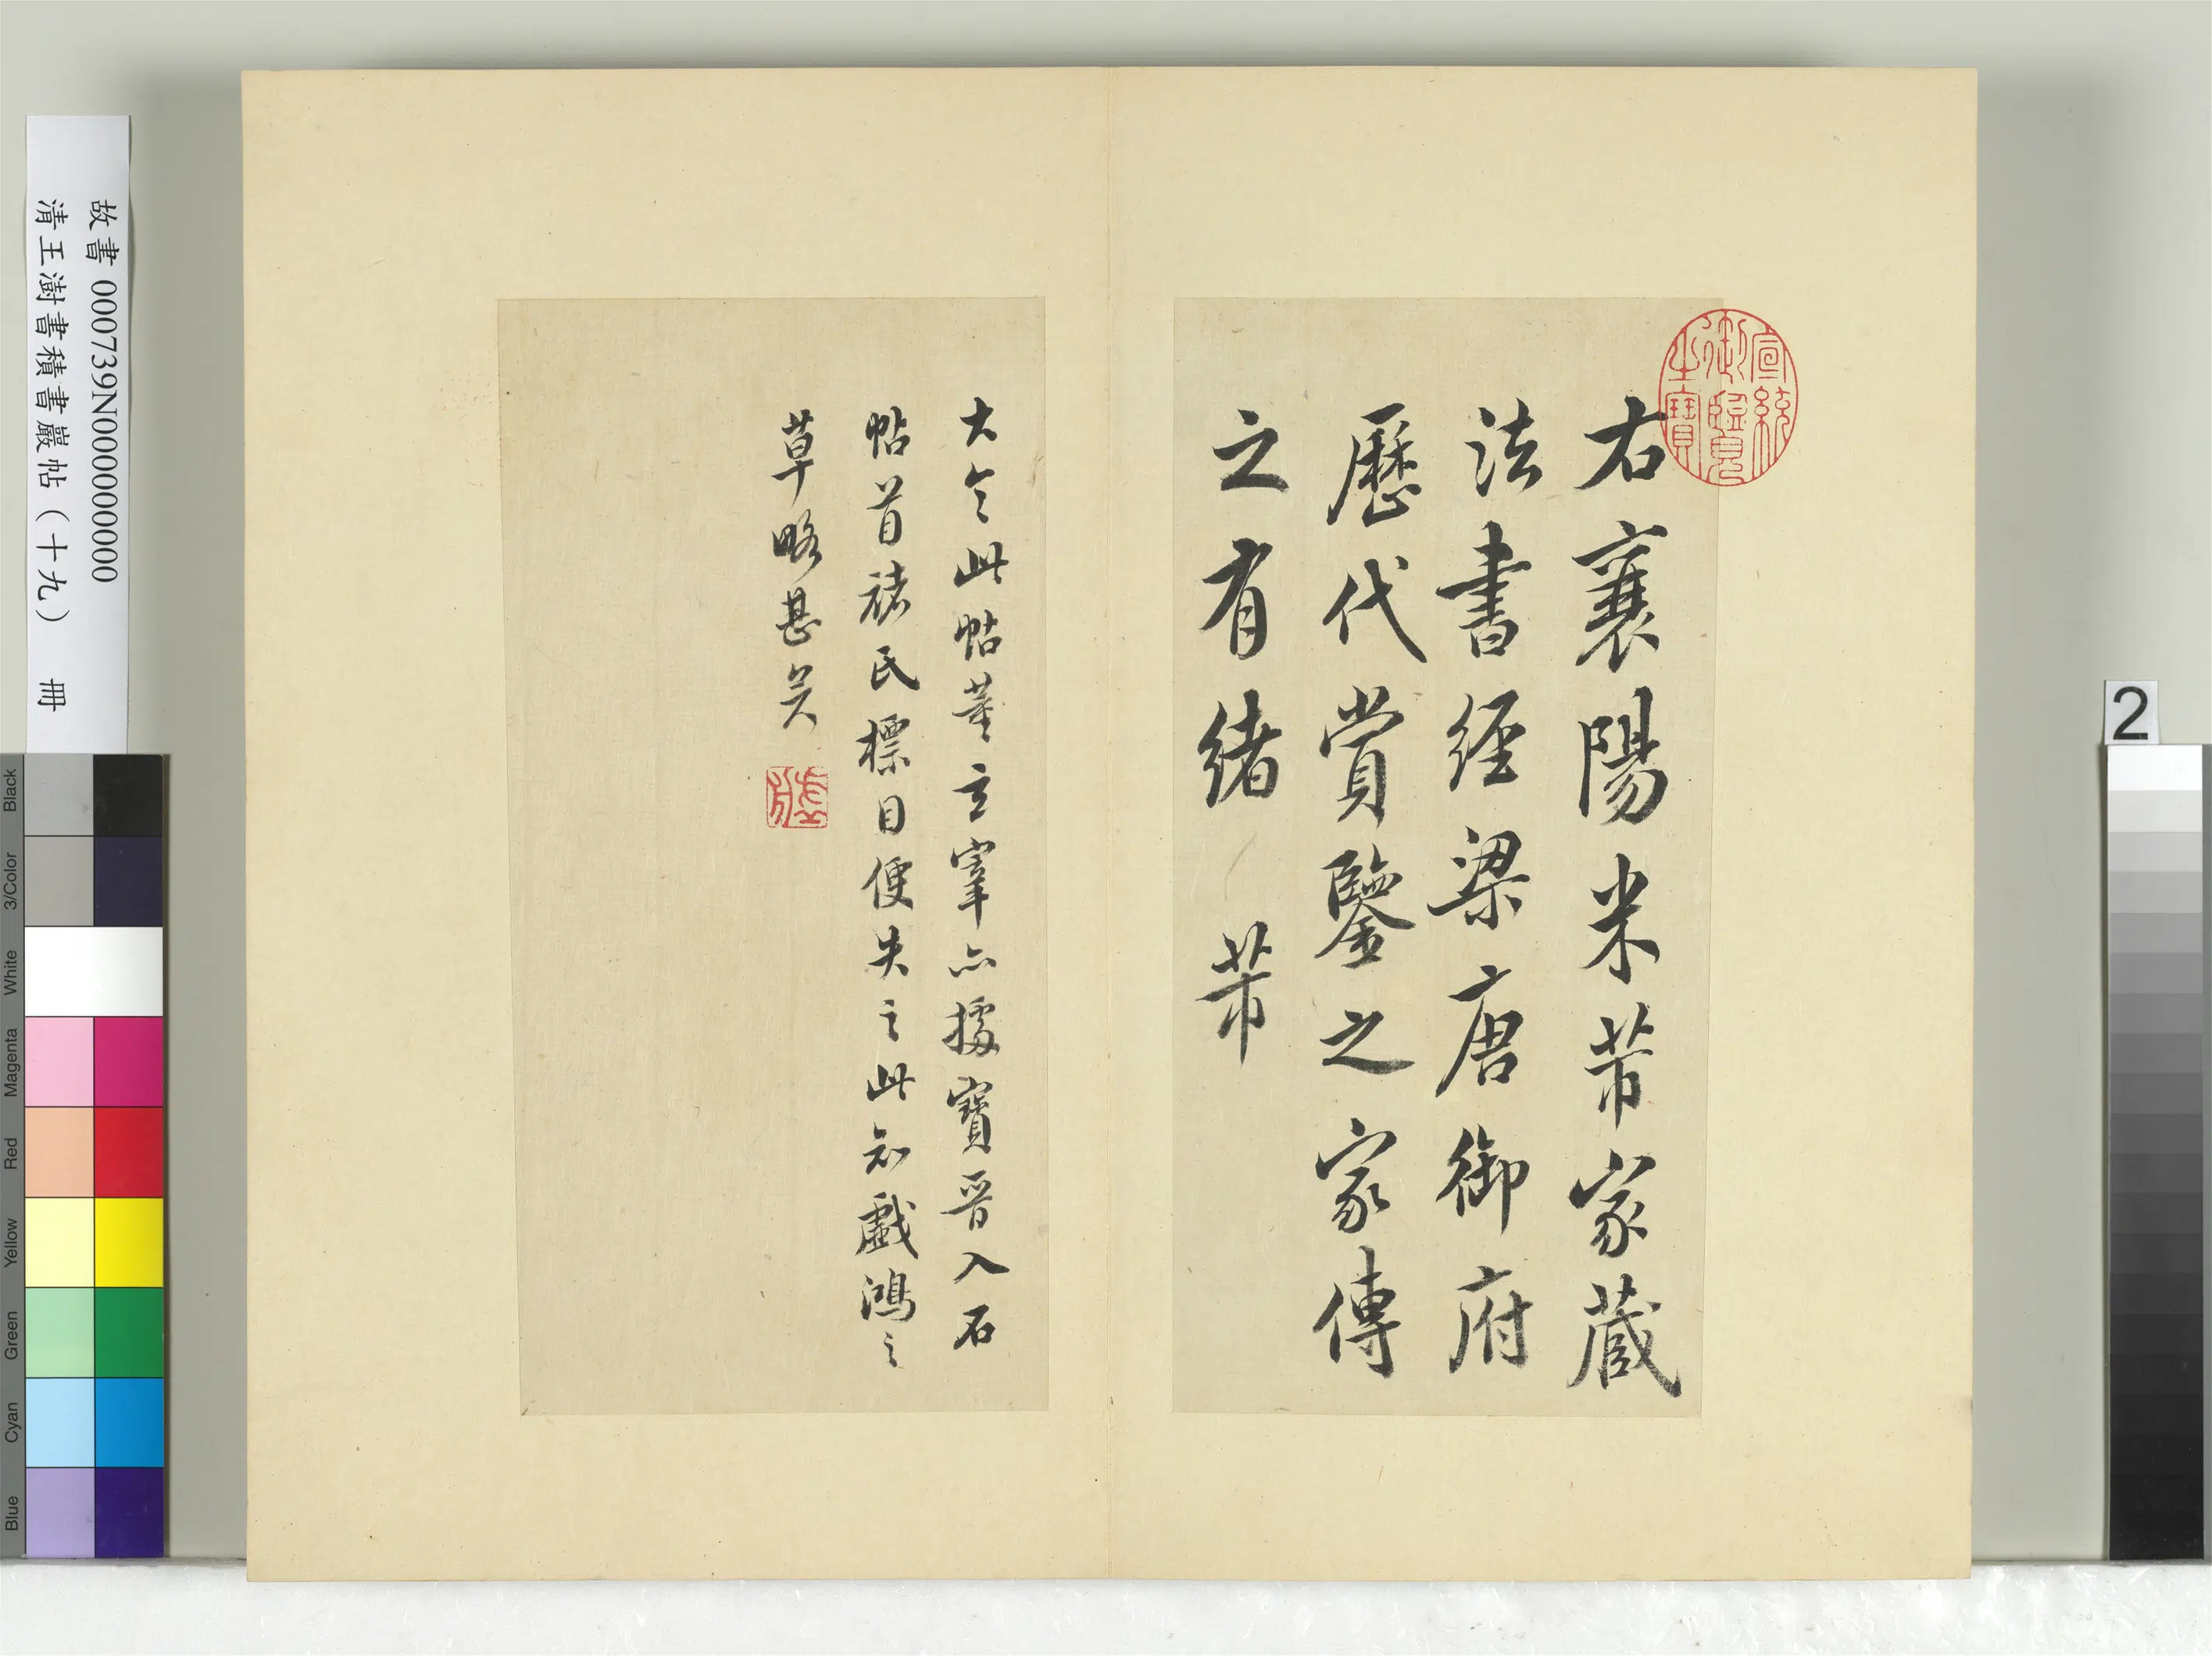 故書 000739N000000000
清王澍書積書巖帖（十九） 冊
右襄陽米芾家藏
法書經梁唐御府
歷代賞鑒之家傳
之有緒 芾
宣統
御覽
之寶
大令此帖董玄宰亦據寶晉入石
帖首褚氏標目便失之此知戲鴻之
草略甚矣
2
Black
3/Color
White
Magenta
Red
Yellow
Green
Cyan
Blue